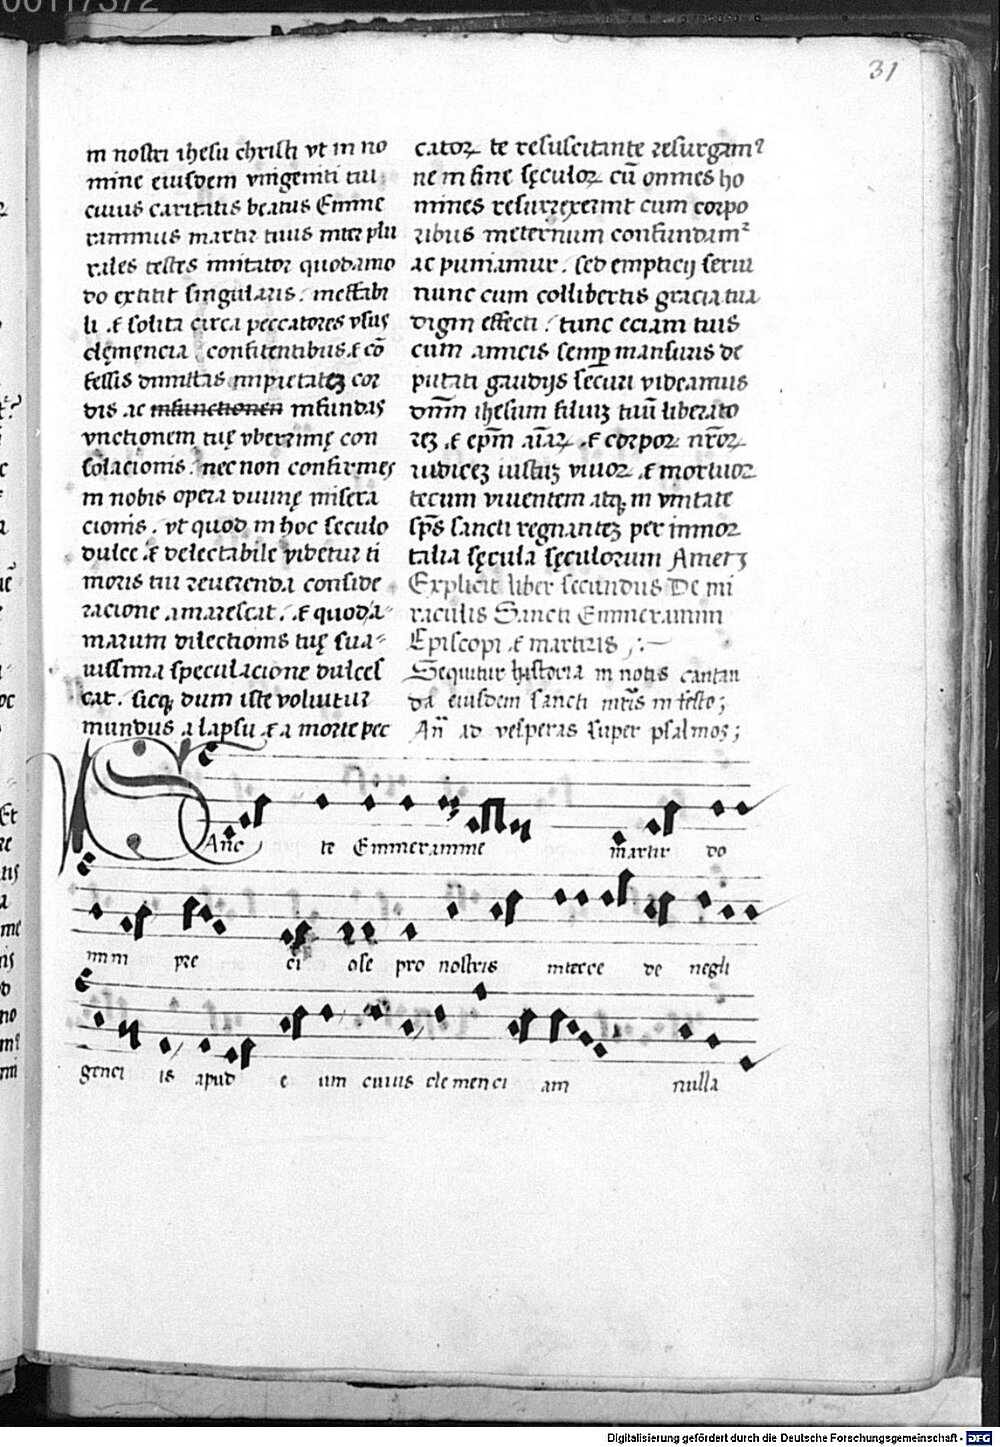 00117372
31
in nostri ihesu christi vt in no
mine eiusdem vnigeniti tui
cuius caritatis beatus Emme
rammus martir tuus inter plu
rales testes imitator quodamo
do extitit singularis. ineffabi
li .et solita circa peccatores vsus
clęmencia confitentibus .et cō
fessis dimittas impietatez cor
dis ac infunctionen infundas
vnctionem tuę vberrimę con
solacionis. nec non confirmes
in nobis opera diuinę misera
cionis. vt quod in hoc seculo
dulce .et delectabile videtur ti
moris tui reuerenda conside
racione amarescat. .et quod a-
marum dilectionis tuę sua-
uissima speculacione dulces
cat. sicq; dum iste voluitur
mundus a lapsu .et a morte pec
catoꝝ te resuscitante resurgam⁹
ne in fine sęculoꝝ cū omnes ho
mines resurrexerint cum corpo
ribus ineternum confundam²
ac puniamur. sed empticij serui
nunc cum collibertis gracia tua
digni effecti. tunc eciam tuis
cum amicis semꝑ mansuris de
putati gaudijs securi videamus
dnm̄ ihesum filiuz tuū liberato
rez .et epm̄ aīaꝝ .et corpoꝝ nr̄oꝝ
iudicez iustuz viuoꝝ .et mortuoꝝ
tecum viuentem atq; in vnitate
sps̄ sancti regnantez per immor
talia sęcula sęculorum Amen
Explicit liber secundus De mi
raculis Sancti Emmerammi
Episcopi .et martiris ;:—
Sequitur historia in notis cantan
da eiusdem sancti mr̄is in festo;
An̄ ad vesperas super psalmos;
SAnc te Emmeramme martir do
mini pre ci ose pro nostris intercede negli
genci is apud e um cuius clemenci am nulla
Digitalisierung gefördert durch die Deutsche Forschungsgemeinschaft - DFG